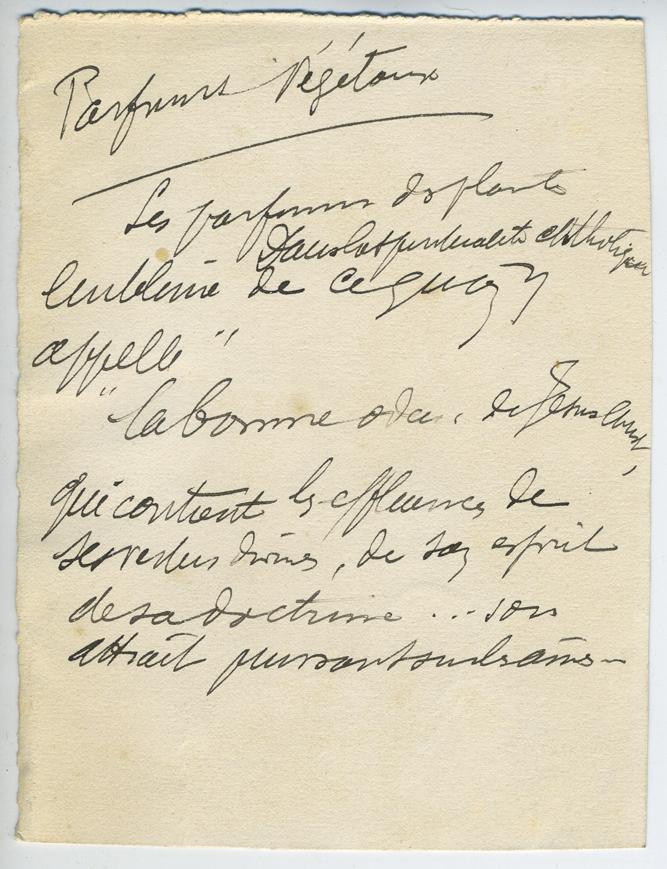 Parfums Végétaux
Les parfums des plantes
Dans la spiritualité catholique
l'emblème de ce qu'on
appelle"
"la bonne odeur de Jésus Christ,
qui contient les effluences de
ses vertus divines, de son esprit
de sa doctrine... son
attrait puissant sur les âmes-